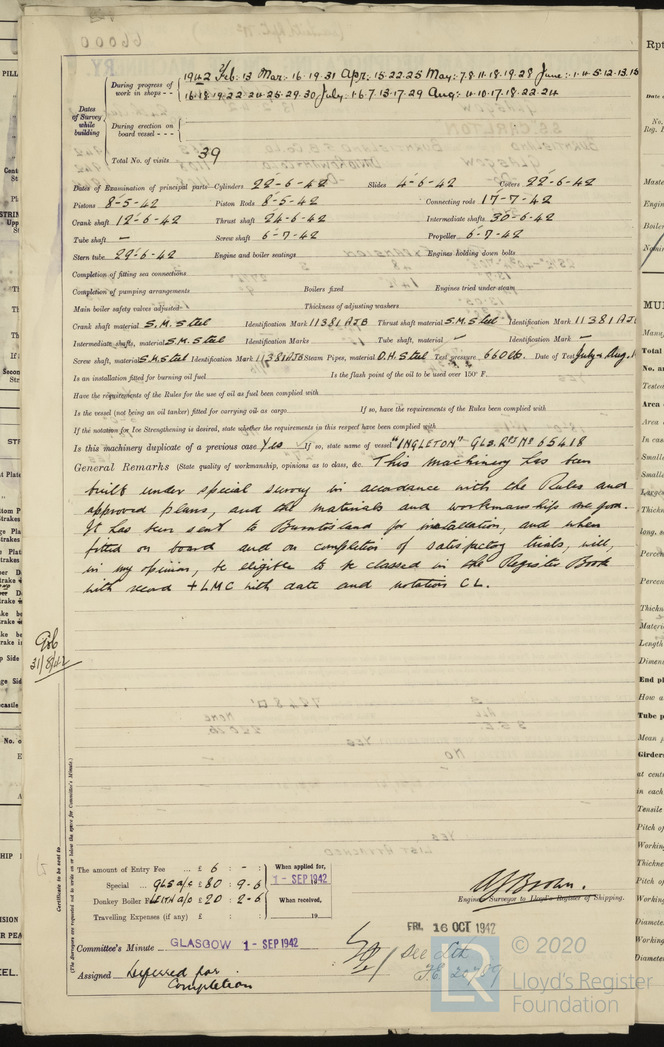 During progress of work in shops - - 1942 Feb: 13 Mar: 16.19.31 Apr: 15.22.25 May: 7.8.11.18.19.28 June: 1.4.5.12.13.15
16.18.19.22.24.25.29.30 July. 1.6.7.13.17.29 Aug: 4.10.17.18.22.24
Dates of Survey while building
During erection on board vessel - - -
Total No. of visits 39
Dates of Examination of principal parts—Cylinders 22-6-42 Slides 4-6-42 Covers 22-6-42
Pistons 8-5-42 Piston Rods 8-5-42 Connecting rods 17-7-42
Crank shaft 12-6-42 Thrust shaft 24-6-42 Intermediate shafts 30-6-42
Tube shaft — Screw shaft 6-7-42 Propeller 6-7-42
Stern tube 29-6-42 Engine and boiler seatings Engines holding down bolts
Completion of fitting sea connections
Completion of pumping arrangements Boilers fixed Engines tried under steam
Main boiler safety valves adjusted Thickness of adjusting washers
Crank shaft material S.M. Steel Identification Mark 11381 AJB Thrust shaft material S.M. Steel Identification Mark 11381 AJB
Intermediate shafts, material S.M. Steel Identification Marks Tube shaft, material — Identification Mark —
Screw shaft, material S.M. Steel Identification Mark 11381 AJB Steam Pipes, material O.H. Steel Test pressure 660 lb. Date of Test July & Aug.
Is an installation fitted for burning oil fuel Is the flash point of the oil to be used over 150° F.
Have the requirements of the Rules for the use of oil as fuel been complied with
Is the vessel (not being an oil tanker) fitted for carrying oil as cargo If so, have the requirements of the Rules been complied with
If the notation for Ice Strengthening is desired, state whether the requirements in this respect have been complied with
Is this machinery duplicate of a previous case Yes If so, state name of vessel "INGLETON" GLS. Rpt No 65418
General Remarks (State quality of workmanship, opinions as to class, &c. This machinery has been
built under special survey in accordance with the Rules and
approved plans, and the materials and workmanship are good.
It has been sent to Burntisland for installation, and when
fitted on board and on completion of satisfactory trials, will,
in my opinion, be eligible to be classed in the Register Book
with record +LMC with date and notation CL.
31/8/42
The amount of Entry Fee ... £ 6 : - :
Special ... GLS a/c £ 80 : 9-6
Donkey Boiler Fee LEITH a/c £ 20 : 2-6
Travelling Expenses (if any) £ : :
When applied for,
1 - SEP 1942
When received,
19
A J Brown.
Engineer Surveyor to Lloyd's Register of Shipping.
Committee's Minute GLASGOW 1 - SEP 1942
FRI. 16 OCT 1942
Assigned Deferred for
Completion
see Lth
F.E. 20789
Certificate to be sent to
(The Surveyors are requested not to write on or below the space for Committee's Minute.)
© 2020
Lloyd's Register
Foundation